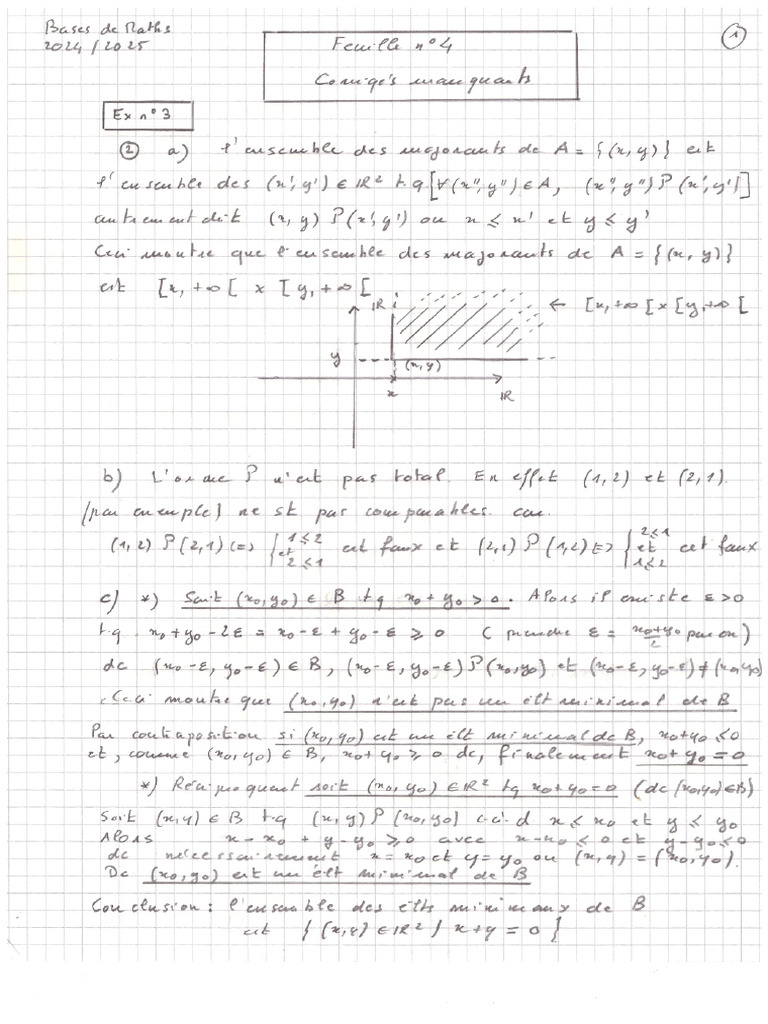 Bases de Maths
2024/2025
1
Feuille n°4
Corrigés manquants
Ex n°3
② a) L'ensemble des majorants de A = {(x, y)} est
l'ensemble des (x', y') ∈ IR² tq [∀(x'', y'') ∈ A, (x'', y'') P (x', y')]
autrement dit (x, y) P (x', y') ou x ⩽ x' et y ⩽ y'
Ceci montre que l'ensemble des majorants de A = {(x, y)}
est [x, +∞[ x [y, +∞[
IR
← [x, +∞[ x [y, +∞[
y
(x, y)
x
IR
b) L'ordre P n'est pas total. En effet (1, 2) et (2, 1).
(par exemple) ne st pas comparables. car
(1, 2) P (2, 1) (=) { 1 ⩽ 2 et 2 ⩽ 1 est faux et (2, 1) P (1, 2) (=) { 2 ⩽ 1 et 1 ⩽ 2 est faux
c) *) Soit (x0, y0) ∈ B tq x0 + y0 > 0. Alors il existe ε > 0
tq. x0 + y0 - 2ε = x0 - ε + y0 - ε ⩾ 0 (prendre ε = (x0 + y0)/2 par ex)
dc (x0 - ε, y0 - ε) ∈ B, (x0 - ε, y0 - ε) P (x0, y0) et (x0 - ε, y0 - ε) ≠ (x0, y0)
. Ceci montre que (x0, y0) n'est pas un élt minimal de B
Par contraposition si (x0, y0) est un élt minimal de B, x0 + y0 ⩽ 0
et, comme (x0, y0) ∈ B, x0 + y0 ⩾ 0 dc, finalement x0 + y0 = 0
*) Réciproquemt soit (x0, y0) ∈ IR² tq x0 + y0 = 0 (dc (x0, y0) ∈ B)
Soit (x, y) ∈ B tq (x, y) P (x0, y0) c-à-d x ⩽ x0 et y ⩽ y0
Alors x - x0 + y - y0 ⩾ 0 avec x - x0 ⩽ 0 et y - y0 ⩽ 0
dc nécessairement x = x0 et y = y0 ou (x, y) = (x0, y0).
Dc (x0, y0) est un élt minimal de B
Conclusion : l'ensemble des élts minimaux de B
est {(x, y) ∈ IR² / x + y = 0}